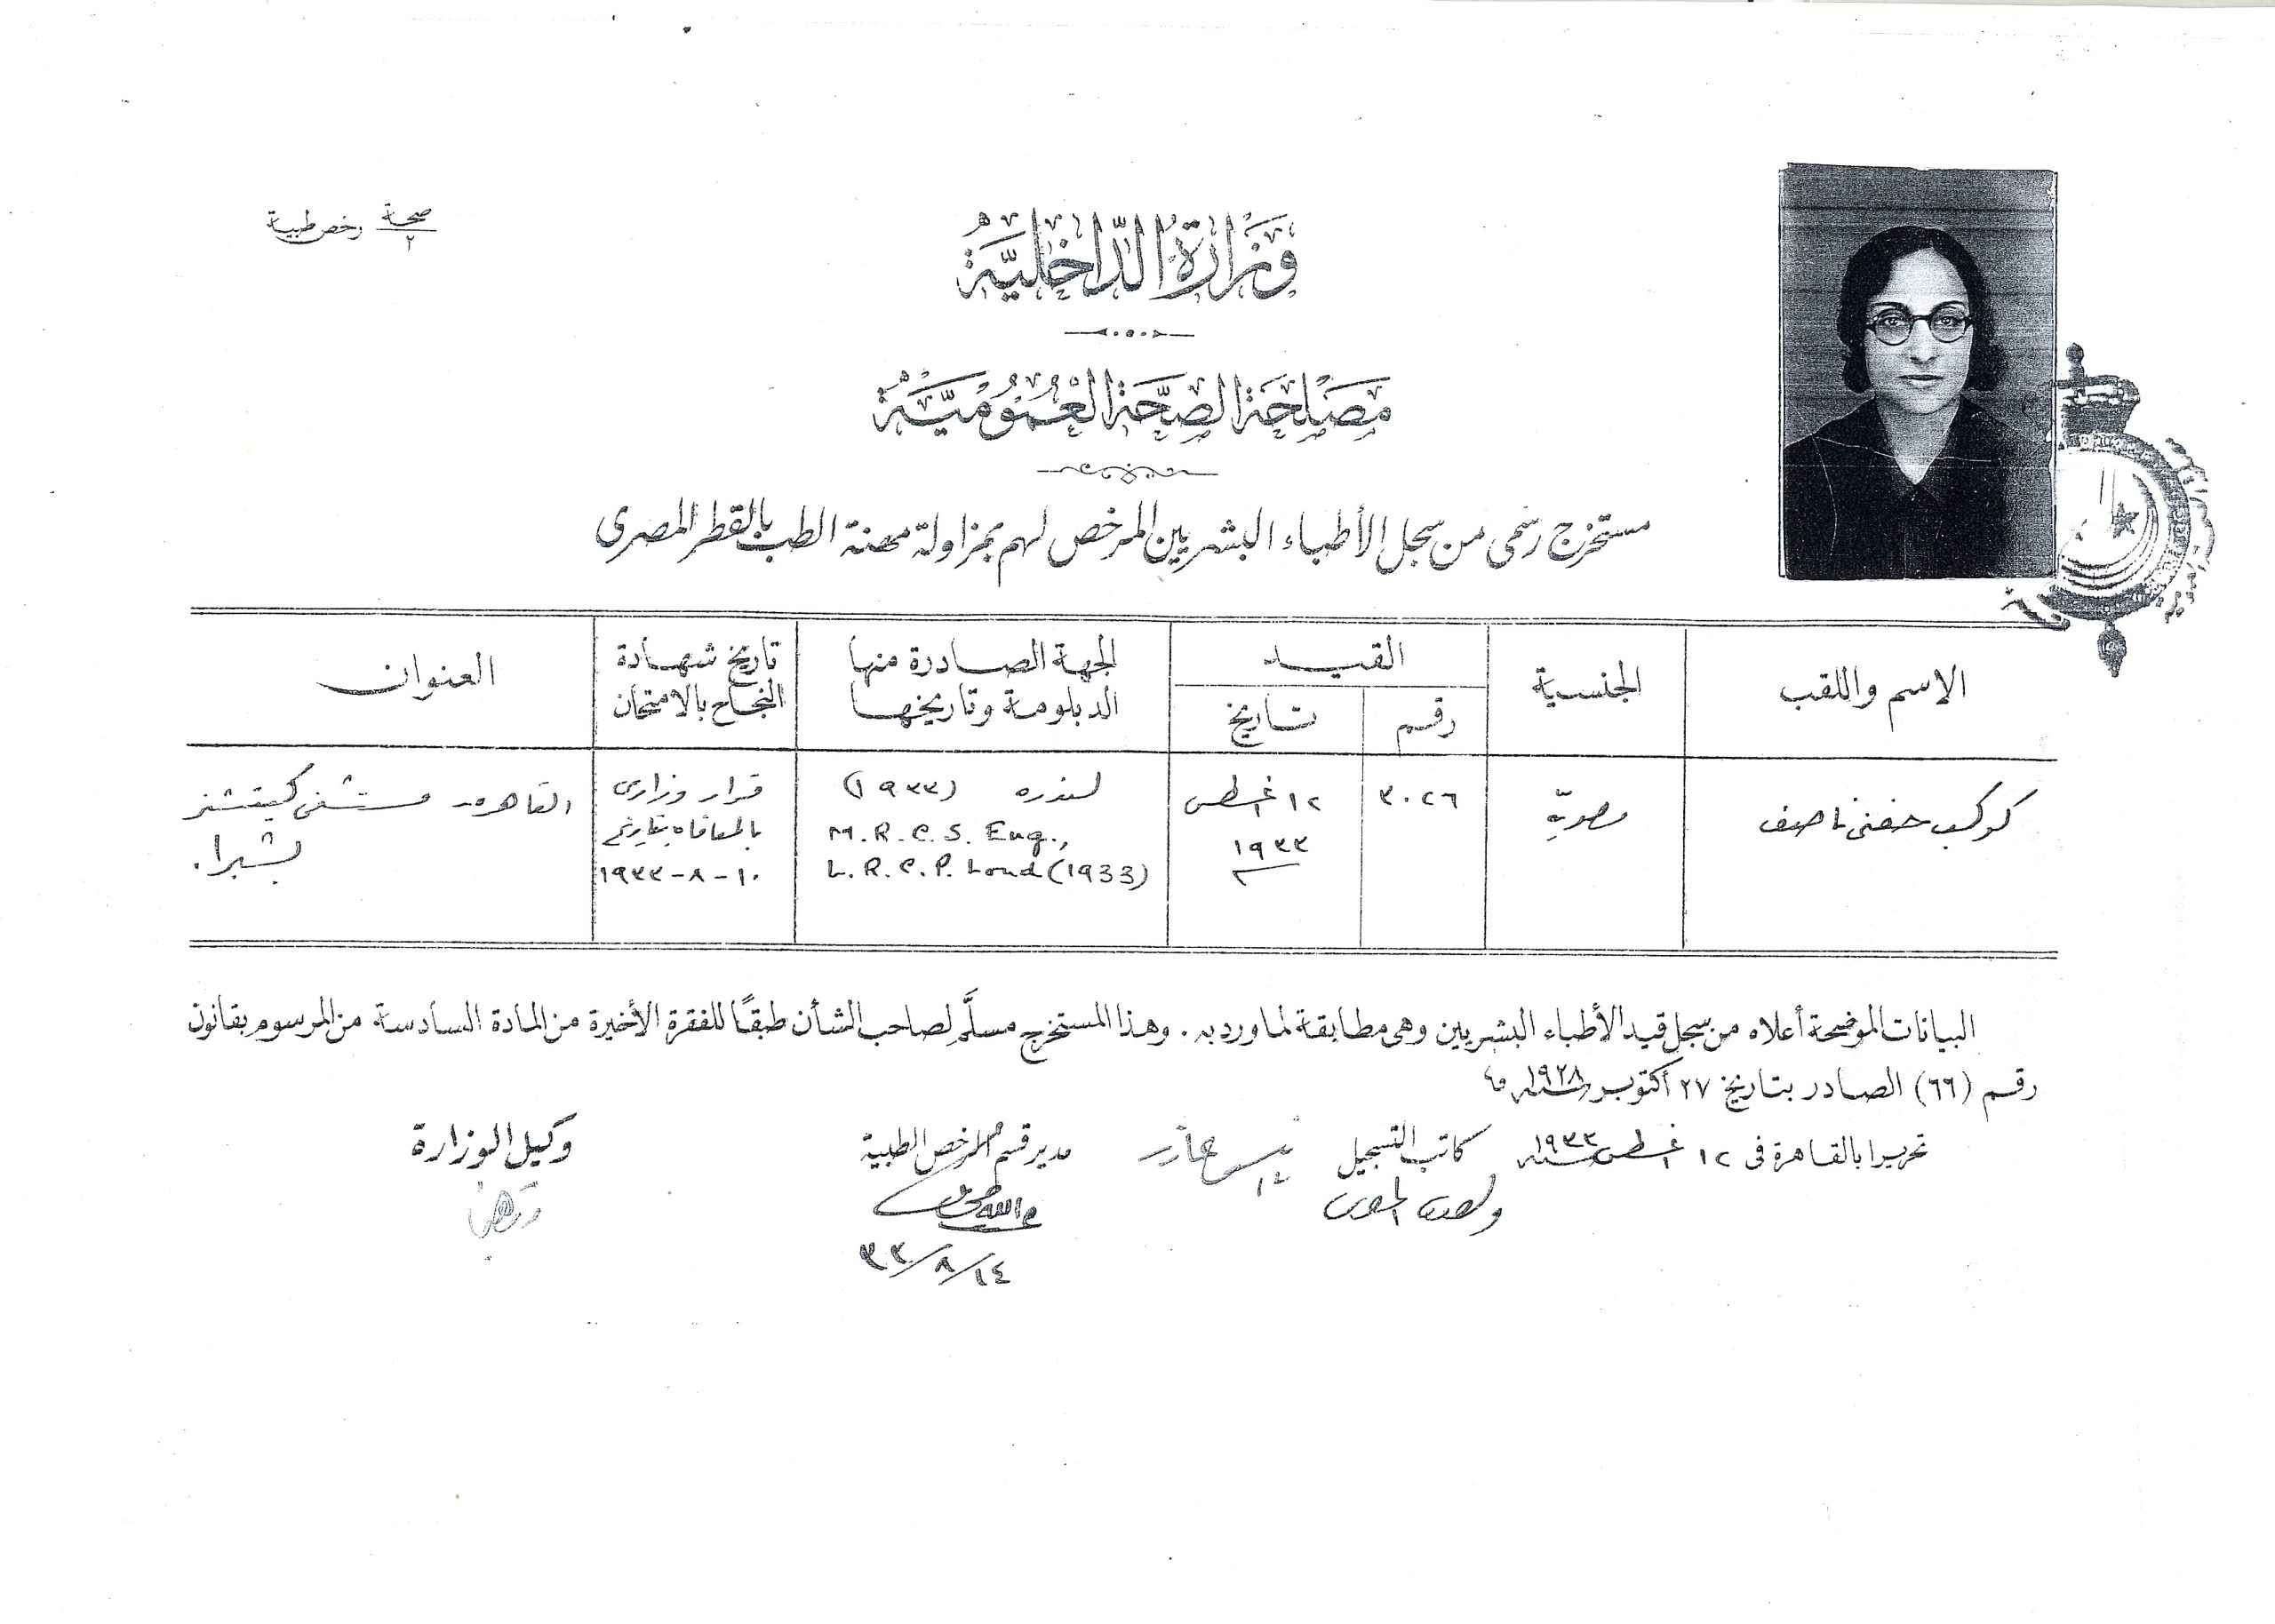 صحة
٢
رخص طبية
وَزَارَةُ الدَّاخِلِيَّةِ
مَصْلَحَةُ الصِّحَّةِ الْعُمُومِيَّةِ
مستخرج رسمى من سجل الأطباء البشريين المرخص لهم بمزاولة مهنة الطب بالقطر المصرى
الاسم واللقب
الجنسية
القيد
رقم
تاريخ
الجهة الصادرة منها
الدبلومة وتاريخها
تاريخ شهادة
النجاح بالامتحان
العنوان
كوكب حفنى ناصف
مصرية
٣٠٢٦
١٢ أغسطس
١٩٣٣
لندره (١٩٣٣)
M.R.C.S. Eng.,
L.R.C.P. Lond (1933)
قرار وزارى
بالمعافاه بتاريخ
١٠-٨-١٩٣٣
القاهره - مستشفى كيتشنر
بشبرا.
البيانات الموضحة أعلاه من سجل قيد الأطباء البشريين وهى مطابقة لما ورد به . وهذا المستخرج مسلَّم لصاحب الشأن طبقًا للفقرة الأخيرة من المادة السادسة من المرسوم بقانون
رقم (٦٦) الصادر بتاريخ ٢٧ أكتوبر سنة ١٩٢٨
تحريرا بالقاهرة فى ١٢ أغسطس سنة ١٩٣٣
كاتب التسجيل
مدير قسم الرخص الطبية
وكيل الوزارة
١٤/٨/٣٣